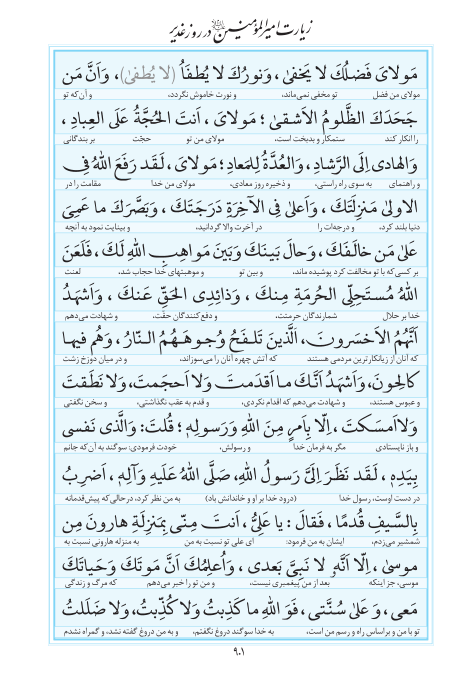 زیارت امیرالمؤمنین در روز غدیر
مَولایَ فَضلُکَ لا یَخفیٰ، وَنورُکَ لا یُطفَأُ (لا یُطفیٰ)، وَاَنَّ مَن
مولای من فضل تو مخفی نمی‌ماند، و نورت خاموش نگردد، و آن‌که تو
جَحَدَکَ الظَّلومُ الاَشقیٰ؛ مَولایَ، اَنتَ الحُجَّةُ عَلَی العِبادِ،
را انکار کند ستمکار و بدبخت است، مولای من تو حجّت بر بندگانی
وَالهادی اِلَی الرَّشادِ، وَالعُدَّةُ لِلمَعادِ؛ مَولایَ، لَقَد رَفَعَ اللهُ فِی
و راهنمای به سوی راه راستی، و ذخیره روز معادی، مولای من خدا مقامت را در
الاولیٰ مَنزِلَتَکَ، وَاَعلیٰ فِی الآخِرَةِ دَرَجَتَکَ، وَبَصَّرَکَ ما عَمِیَ
دنیا بلند کرد، و درجه‌ات را در آخرت والا گردانید، و بینایت نمود به آنچه
عَلیٰ مَن خالَفَکَ، وَحالَ بَینَکَ وَبَینَ مَواهِبِ اللهِ لَکَ، فَلَعَنَ
بر کسی که با تو مخالفت کرد پوشیده ماند، و بین تو و موهبتهای خدا حجاب شد، لعنت
اللهُ مُستَحِلِّی الحُرمَةِ مِنکَ، وَذائِدِی الحَقِّ عَنکَ، وَاَشهَدُ
خدا بر حلال شمارندگان حرمتت، و دفع‌کنندگان حقّت، و شهادت می‌دهم
اَنَّهُمُ الاَخسَرونَ، اَلَّذینَ تَلفَحُ وُجوهَهُمُ النّارُ، وَهُم فیها
که آنان از زیانکارترین مردمی هستند که آتش چهره آنان را می‌سوزاند، و در میان دوزخ زشت
کالِحونَ، وَاَشهَدُ اَنَّکَ ما اَقدَمتَ وَلا اَحجَمتَ، وَلا نَطَقتَ
و عبوس هستند، و شهادت می‌دهم که اقدام نکردی، و قدم به عقب نگذاشتی، و سخن نگفتی
وَلا اَمسَکتَ، اِلّا بِاَمرٍ مِنَ اللهِ وَرَسولِهِ؛ قُلتَ: وَالَّذی نَفسی
و باز نایستادی مگر به فرمان خدا و رسولش، خودت فرمودی: سوگند به آن که جانم
بِیَدِهِ، لَقَد نَظَرَ اِلَیَّ رَسولُ اللهِ، صَلَّی اللهُ عَلَیهِ وَآلِهِ، اَضرِبُ
در دست اوست، رسول خدا (درود خدا بر او و خاندانش باد) به من نظر کرد، درحالی‌که پیش‌قدمانه
بِالسَّیفِ قُدمًا، فَقالَ: یا عَلِیُّ، اَنتَ مِنّی بِمَنزِلَةِ هارونَ مِن
شمشیر می‌زدم، ایشان به من فرمود: ای علی تو نسبت به من به منزله هارونی نسبت به
موسیٰ، اِلّا اَنَّهُ لا نَبِیَّ بَعدی، وَاُعلِمُکَ اَنَّ مَوتَکَ وَحَیاتَکَ
موسی، جز اینکه بعد از من پیغمبری نیست، و من تو را خبر می‌دهم که مرگ و زندگی
مَعی، وَعَلیٰ سُنَّتی، فَوَ اللهِ ما کَذِبتُ وَلا کُذِّبتُ، وَلا ضَلَلتُ
تو با من و براساس راه و رسم من است، به خدا سوگند دروغ نگفتم، و به من دروغ گفته نشد، و گمراه نشدم
۹۰۱